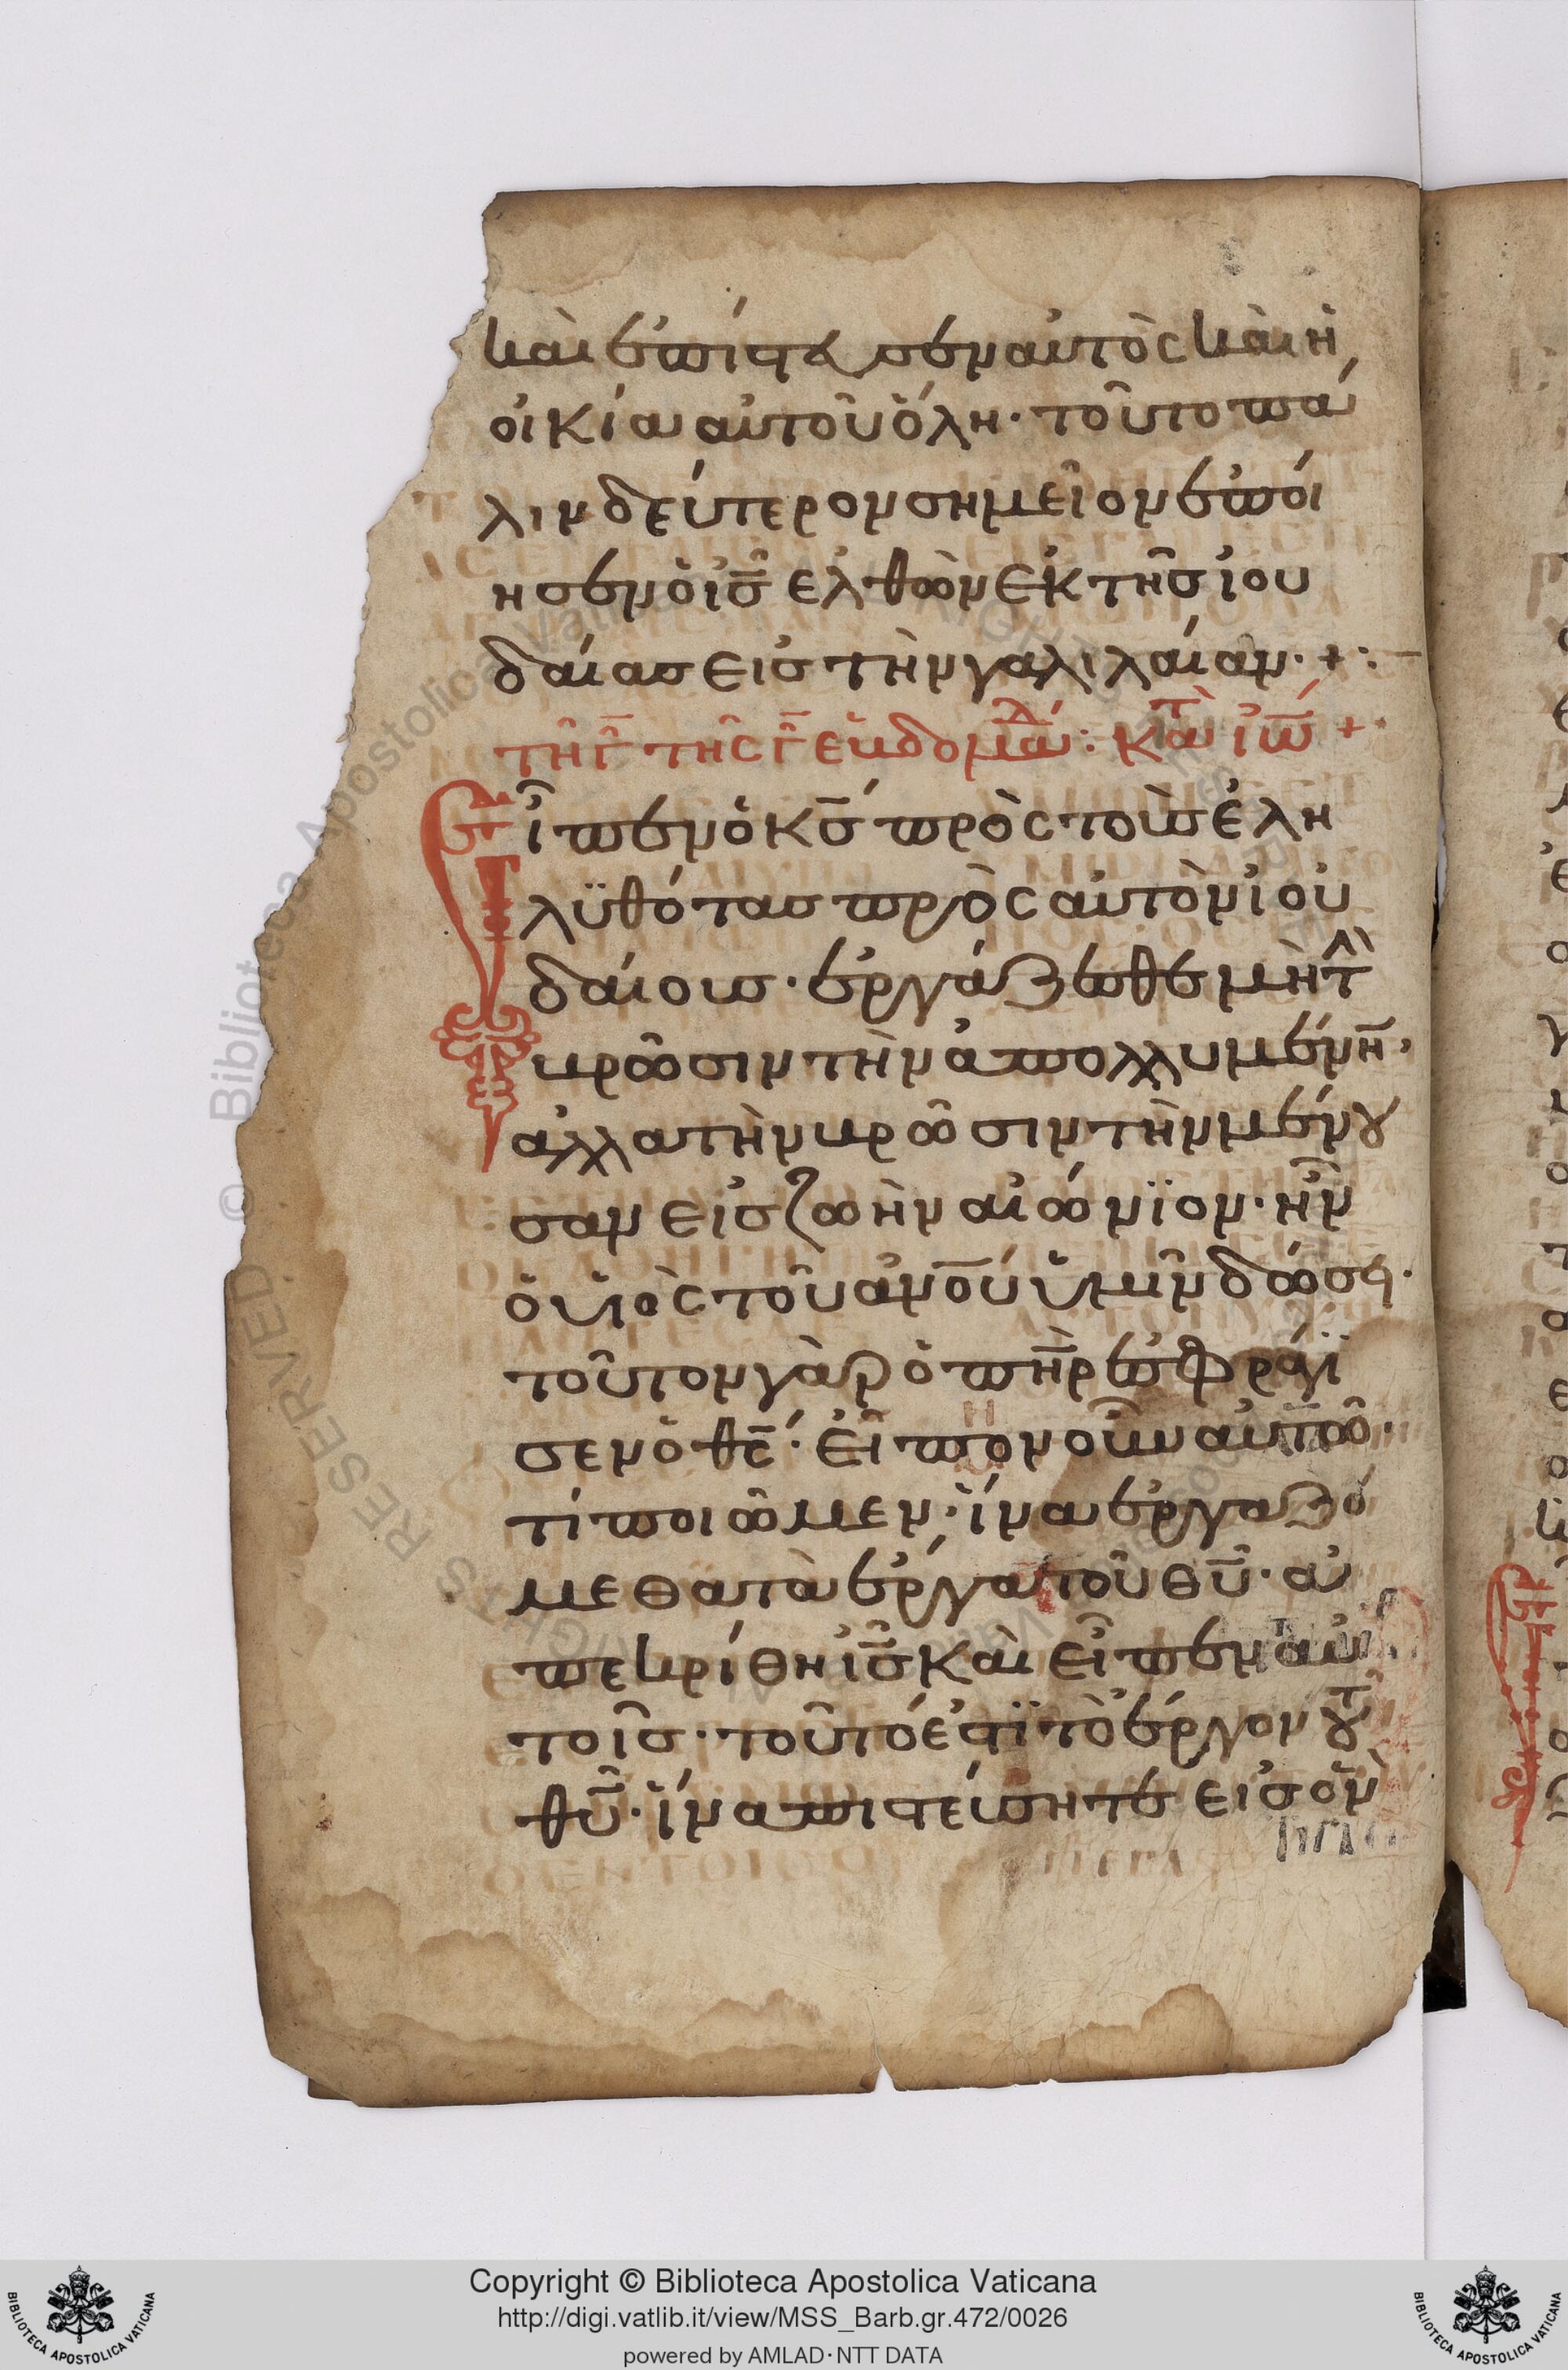 καὶ ἐπίστευσεν αὐτὸς καὶ ἡ
οἰκία αὐτοῦ ὅλη· τοῦτο πά
λιν δεύτερον σημεῖον ἐποί
ησεν ὁ ἰς̅ ἐλθὼν ἐκ τῆς ἰου
δαίας εἰς τὴν γαλιλαίαν· +:–
τῇ γ̅ τῆς γ̅ εὐδομάδ: κατὰ ἰω̅ +
Εἶπεν ὁ κς̅ πρὸς τοὺς ἐλη
λϋθότας πρὸς αὐτὸν ἰου
δαίους· ἐργάζεσθε μὴ τὴν
βρῶσιν τὴν ἀπολλυμένην·
ἀλλα τὴν βρῶσιν τὴν μένου
σαν εἰς ζωὴν αἰώνϊον· ἣν
ὁ υἱὸς τοῦ ἀνο̅υ̅ ὑμῖν δώσει·
τοῦτον γὰρ ὁ πη̅ρ ἐσφράγϊ
σεν ὁ θς̅· εἶπον οὖν αὐτῶ·
τί ποιῶμεν· ἵνα ἐργαζό
μεθα τὰ ἔργα τοῦ θυ̅· ἀ
πεκρίθη ἰς̅ καὶ εἶπεν αὐ
τοῖς· τοῦτό ἐστϊ τὸ ἔργον τοῦ
θυ̅· ἵνα πιστεύσητε εἰς ὃν
Copyright © Biblioteca Apostolica Vaticana
http://digi.vatlib.it/view/MSS_Barb.gr.472/0026
powered by AMLAD·NTT DATA
BIBLIOTECA APOSTOLICA VATICANA
BIBLIOTECA APOSTOLICA VATICANA